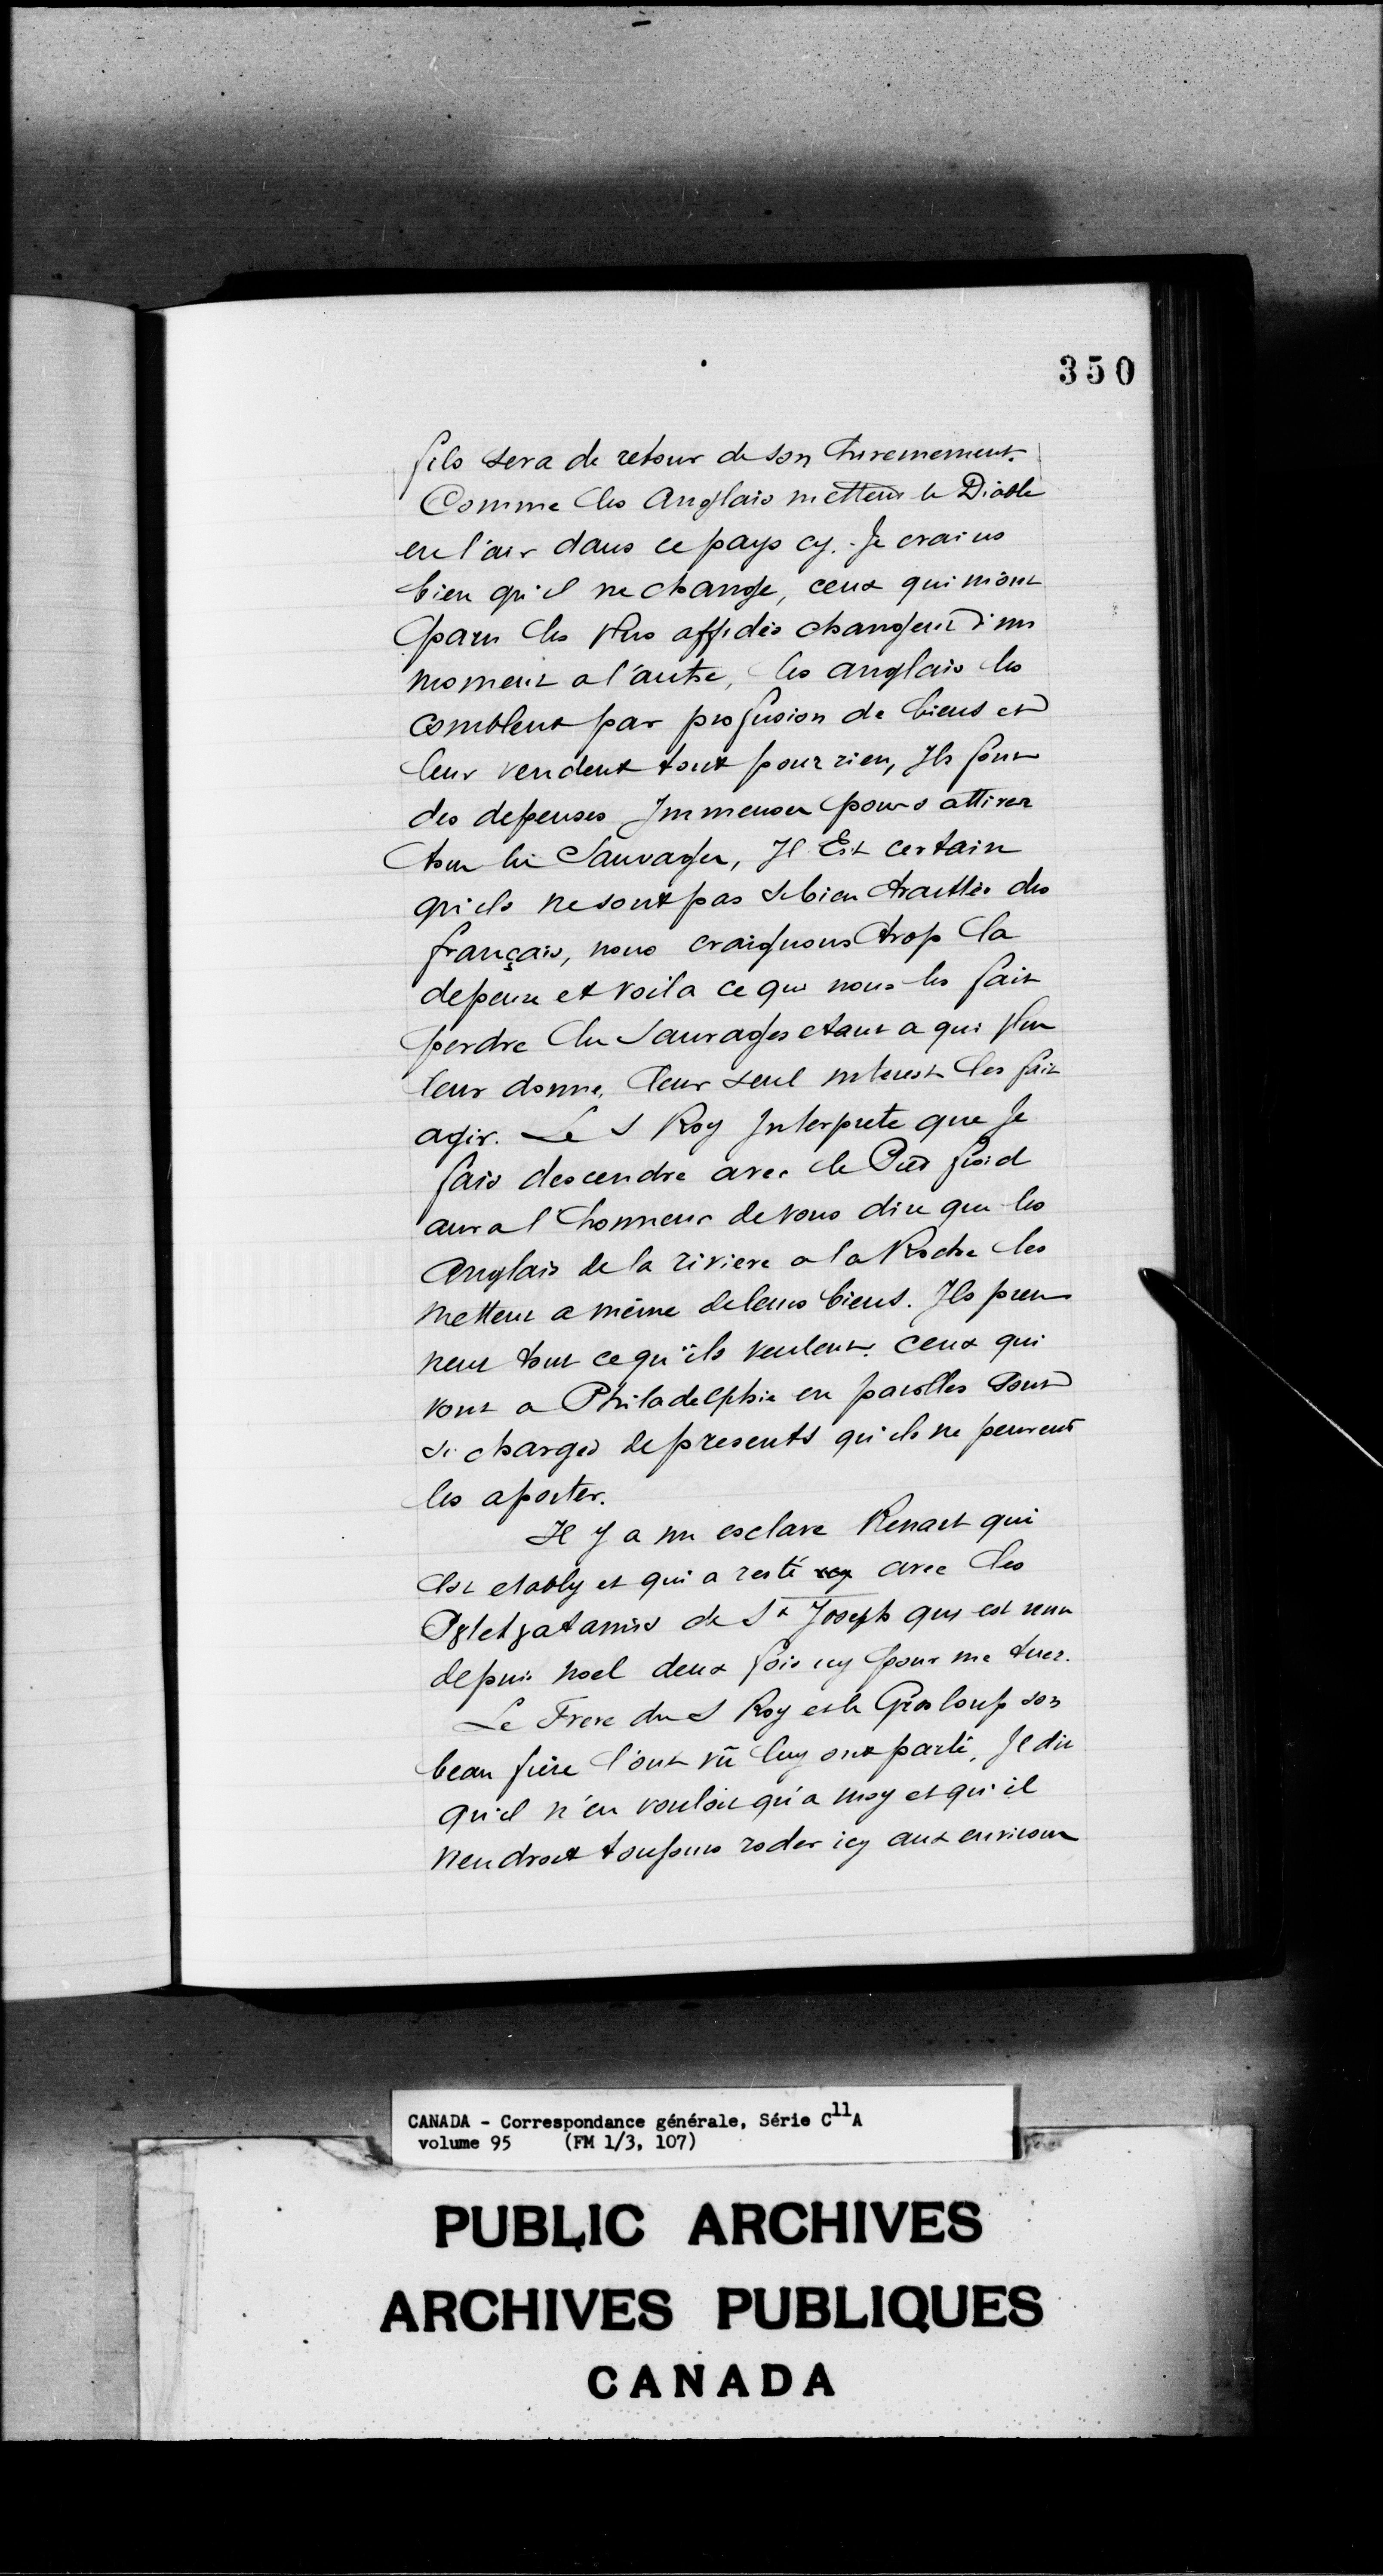 350
fils sera de retour de son hivernement.
Comme les Anglais mettent le Diable
en l'air dans ce pays cy. Je crains
bien qu'il ne change, ceux qui m'ont
paru les plus affidés changent d'un
moment a l'autre, les anglais les
comblent par profusion de biens et
leur vendent tout pour rien, Ils font
des depenses Immenses pour s attirer
tous les Sauvages, Il Est certain
qu'ils ne sont pas si bien traittés des
français, nous craignons trop la
depense et voila ce qui nous les fait
perdre les Sauvages etant a qui plus
leur donne, leur seul interest les fait
agir. Le S Roy Interprete que Je
fais descendre avec le Pied froid
aura l'honneur de vous dire que les
Anglais de la riviere a la Roche les
mettent a même de leurs biens. Ils pren
nent tout ce qu'ils veulent. ceux qui
vont a Philadelphie en parolles sont
si chargés de presents qu'ils ne peuvent
les aporter.
Il y a un esclave Renart qui
est etably et qui a resté avec les
P8tet8atamis de St Joseph qui est venu
depuis noel deux fois icy pour me tuer.
Le Frere du S Roy et le Gros loup son
beau frère l'ont vû luy ont parlé, Il dit
qu'il n'en vouloit qu'a moy et qu'il
viendroit toujours roder icy aux environs
CANADA - Correspondance générale, Série C11A
volume 95 (FM 1/3, 107)
PUBLIC ARCHIVES
ARCHIVES PUBLIQUES
CANADA